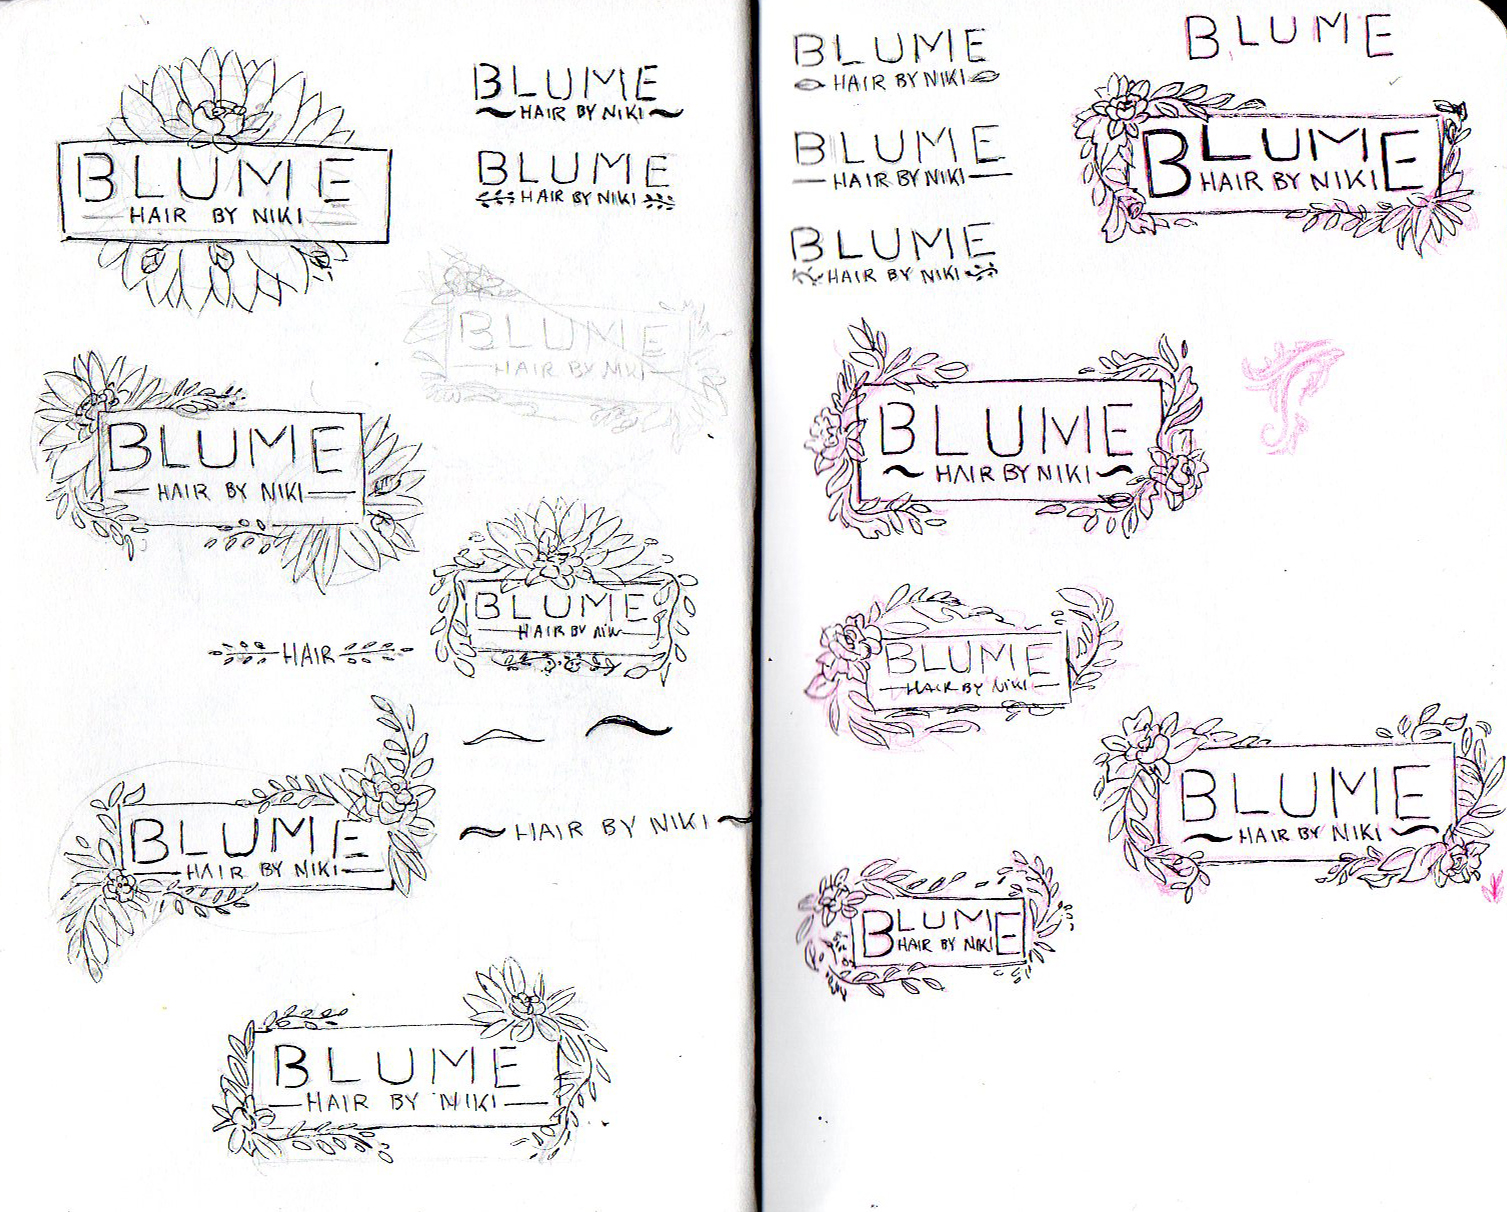 BLUME
HAIR BY NIKI
BLUME
HAIR BY NIKI
BLUME
HAIR BY NIKI
BLUME
HAIR BY NIKI
BLUME
HAIR BY NIKI
BLUME
HAIR BY NIKI
HAIR
BLUME
HAIR BY NIKI
HAIR BY NIKI
BLUME
HAIR BY NIKI
BLUME
HAIR BY NIKI
BLUME
HAIR BY NIKI
BLUME
HAIR BY NIKI
BLUME
BLUME
HAIR BY NIKI
BLUME
HAIR BY NIKI
BLUME
HAIR BY NIKI
BLUME
HAIR BY NIKI
BLUME
HAIR BY NIKI
BLUME
HAIR BY NIKI